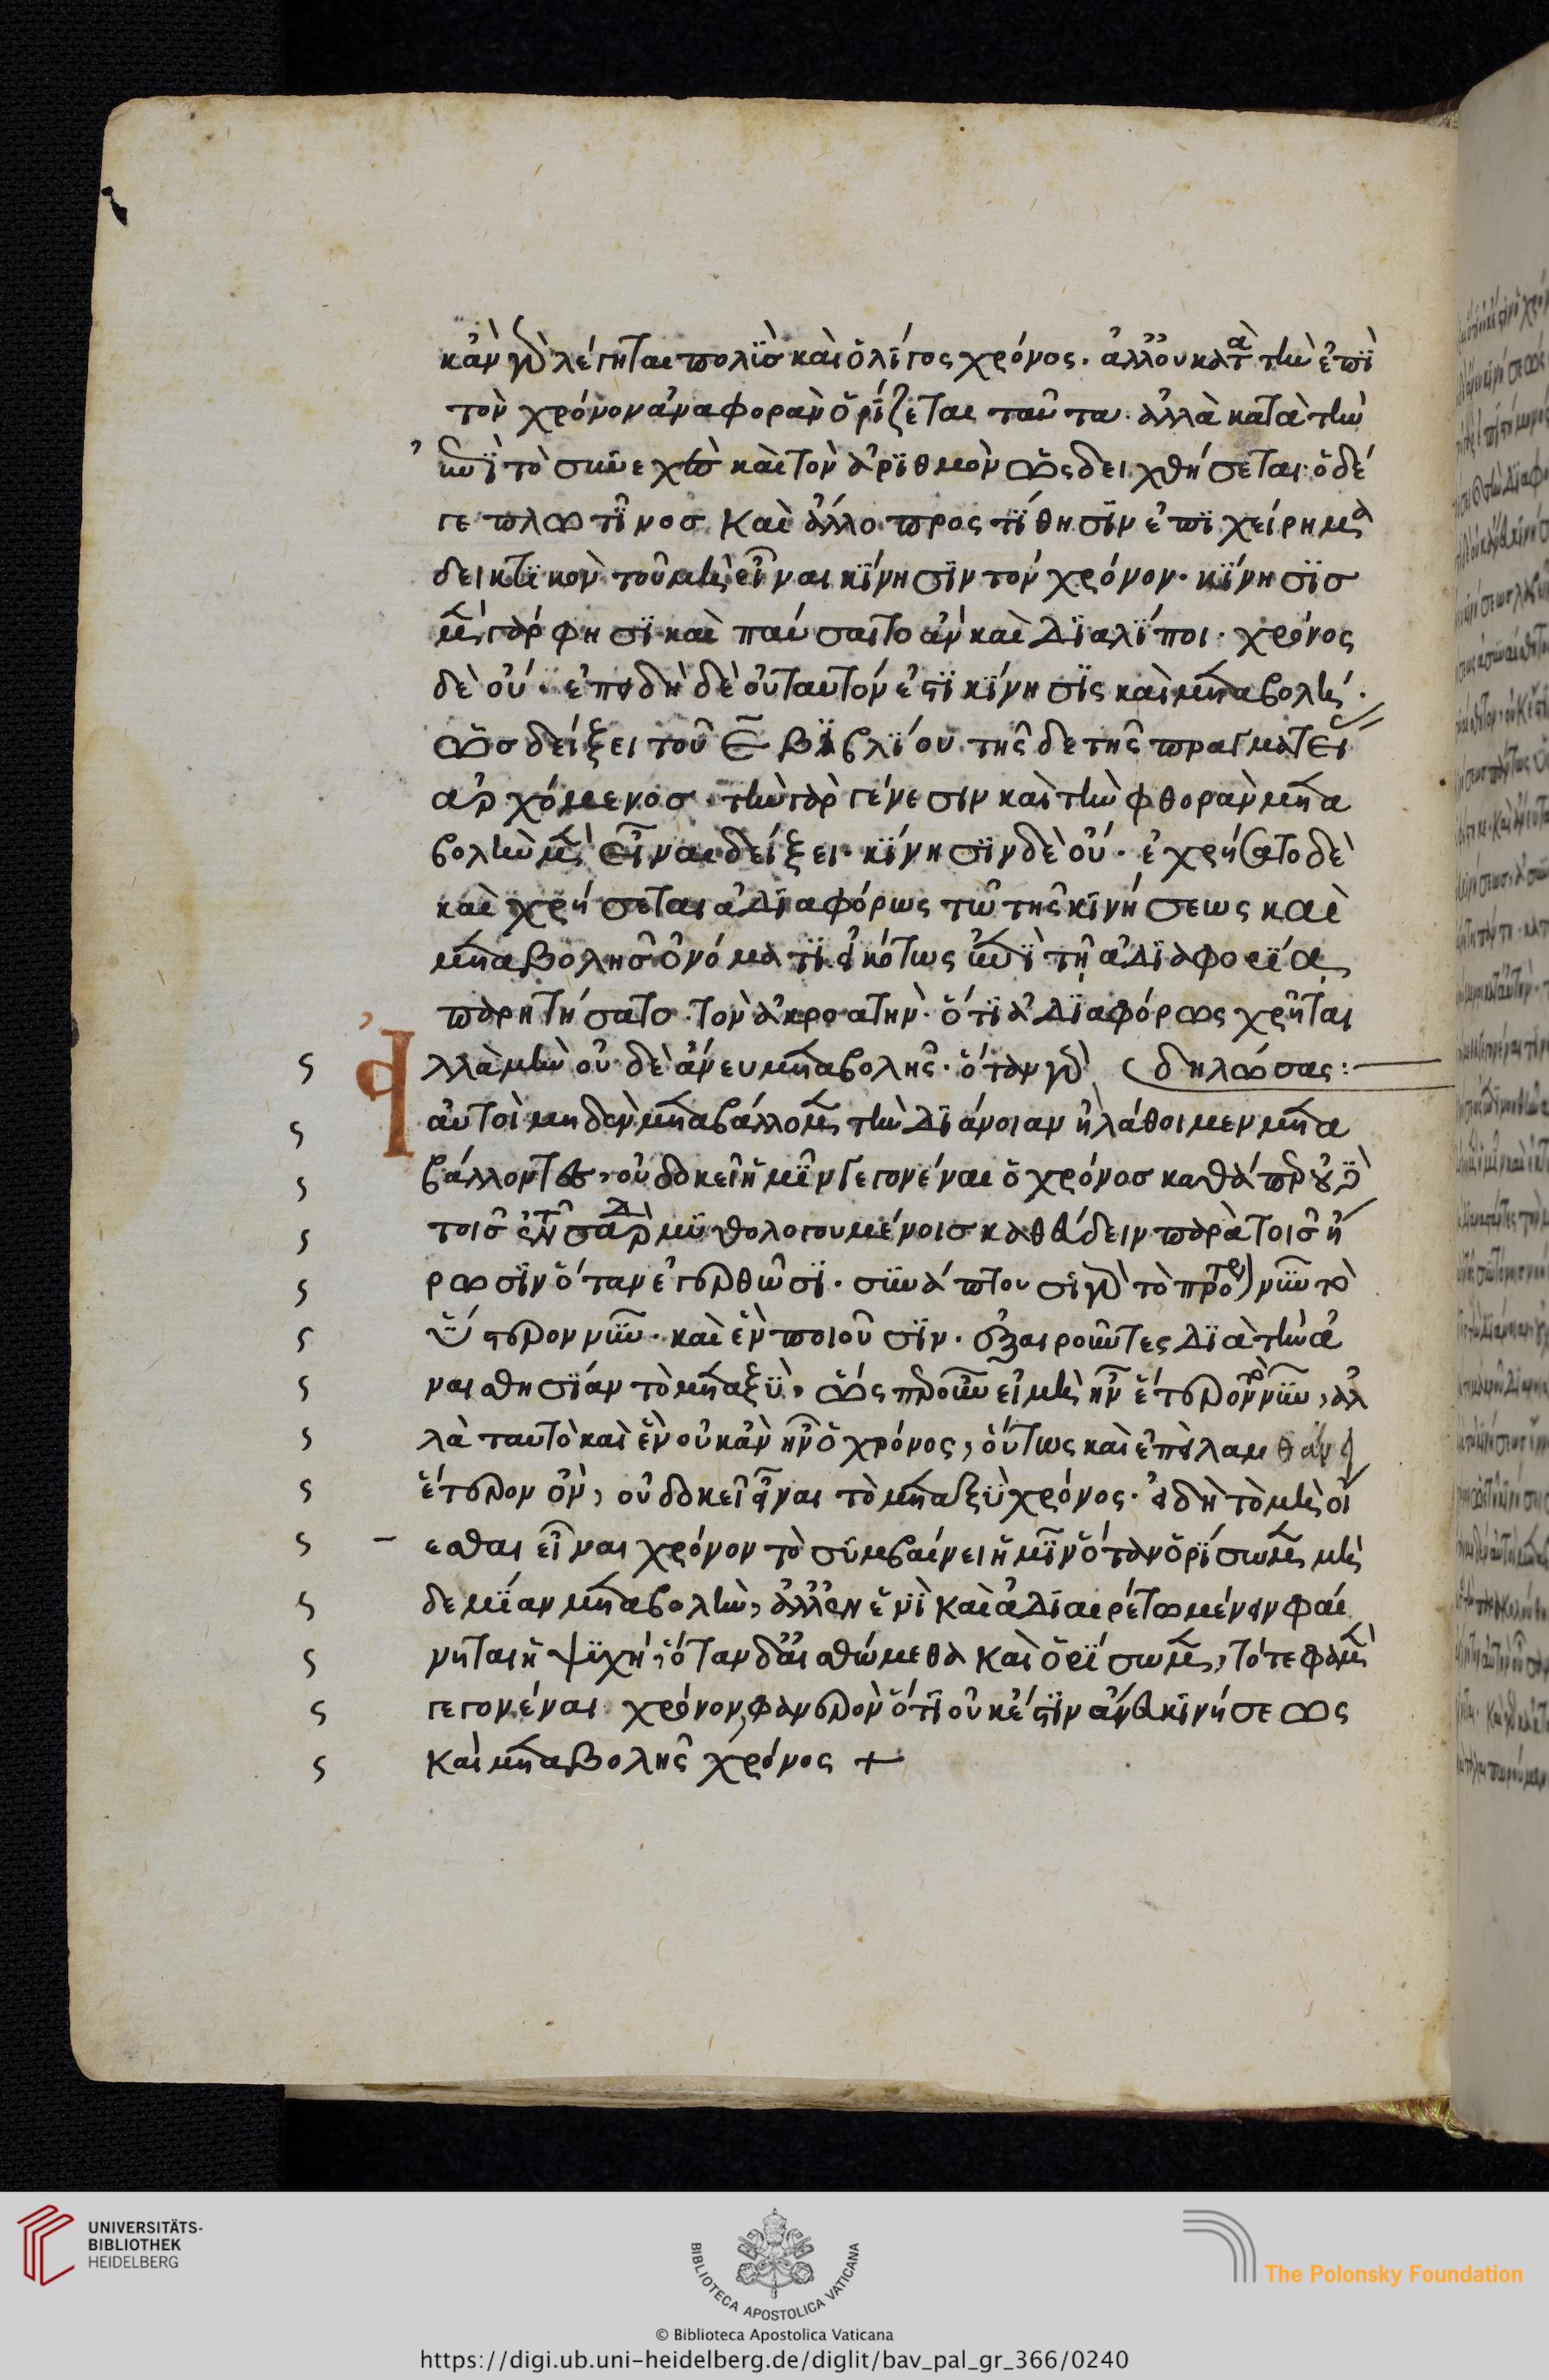 κἂν γὰρ λέγηται πολὺς καὶ ὀλίγος χρόνος. ἀλλ' οὐ κατὰ τὴν ἐπὶ
τὸν χρόνον ἀναφορὰν ὁρίζεται ταῦτα. ἀλλὰ κατὰ τὴν
ἐπὶ τὸ συνεχὲς καὶ τὸν ἀριθμὸν ὡς δειχθήσεται. ὁ δέ
γε πλωτῖνος καὶ ἄλλο προςτίθησιν ἐπιχείρημα
δεικτικὸν τοῦ μὴ εἶναι κίνησιν τὸν χρόνον. κίνησις
μὲν γάρ φησι καὶ παύσαιτο ἂν καὶ διαλίποι. χρόνος
δὲ οὔ. ἐπειδὴ δὲ οὐ ταυτόν ἐστι κίνησις καὶ μεταβολή.
ὡς δείξει τοῦ ε βιβλίου τῆςδε τῆς πραγματεί
αρχόμενος. τὴν γὰρ γένεσιν καὶ τὴν φθορὰν μετα
βολὴν μὲν εἶναι δείξει. κίνησιν δὲ οὔ. ἐχρήσατο δὲ
καὶ χρήσεται ἀδιαφόρως τῶ τῆς κινήσεως καὶ
μεταβολῆς ὀνόματι. εἰκότως ἐπὶ τῆ ἀδιαφορία
παρητήσατο τὸν ἀκροατὴν. ὅτι ἀδιαφόρως χρῆται
δηλώσας:
Ἀλλὰ μὴν οὐδὲ ἄνευ μεταβολῆς. ὅταν γὰρ
αὐτοὶ μηδὲν μεταβάλλομεν τὴν διάνοιαν ἢ λάθοιμεν μετα
βάλλοντες, οὐ δοκεῖ ἡμῖν γεγονέναι ὁ χρόνος καθάπερ οὐδὲ
τοῖς ἐν τῆ σαρδ μυθολογουμένοις καθεύδειν παρὰ τοῖς ἥ
ρωσιν ὅταν ἐγερθῶσι. συνάπτουσι γὰρ τὸ πρότερον νῦν τῶ
ὕστερον νῦν. καὶ ἓν ποιοῦσιν. ἐξαιροῦντες διὰ τὴν ἀ
ναισθησίαν τὸ μεταξὺ, ὥςπερ οὖν εἰ μὴ ἦν ἕτερον τὸ νῦν, ἀλ
λὰ ταυτὸ καὶ ἓν οὐκ ἂν ἦν ὁ χρόνος, οὕτως καὶ ἐπεὶ λαμθάνει
ἕτερον ὂν, οὐ δοκεῖ εἶναι τὸ μεταξὺ χρόνος. εἰ δὴ τὸ μὴ οἴ
εσθαι εἶναι χρόνον τὸ συμβαίνει ἡμῖν ὅταν ὁρίσωμεν μη
δεμίαν μεταβολὴν, ἀλλ' ἐν ἑνὶ καὶ ἀδιαιρέτω μένειν φαί
νηται ἡ ψυχή, ὅταν δ' αἰσθώμεθα καὶ ὁρίσωμεν, τότε φαμὲν
γεγονέναι χρόνον, φανερὸν ὅτι οὐκ ἔστιν ἄνευ κινήσεως
καὶ μεταβολῆς χρόνος +
UNIVERSITÄTS-
BIBLIOTHEK
HEIDELBERG
BIBLIOTECA APOSTOLICA VATICANA
The Polonsky Foundation
© Biblioteca Apostolica Vaticana
https://digi.ub.uni-heidelberg.de/diglit/bav_pal_gr_366/0240